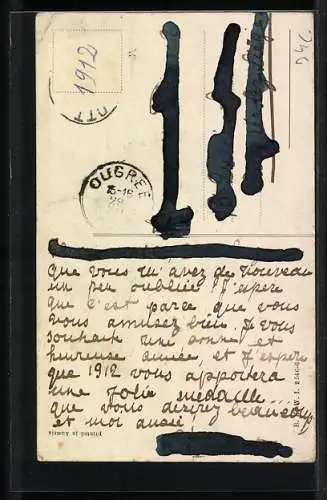 1912
OUGRÉE
15-16
29
Que vous m'avez de Nouveau
un peu oubliée! J'espère
que c'est parce que vous
vous amusez bien. Je vous
souhait une bonne et
heureuse année, et J'espère
que 1912 vous apportera
une Jolie médaille...
que vous désirez beaucoup
et moi aussi!
Printed in Austria